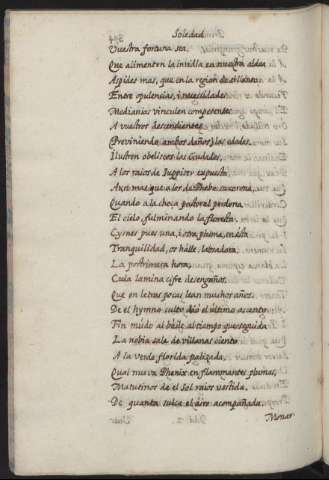 Soledad
Vuestra fortuna sea,
Que alimenten la invidia en nuestra aldea
Aspides mas, que en la region de
Entre opulencias, i necesidades
Medianias vinculen competentes
A vuestros descendientes
(Previniendo ambos daños) las edades.
Ilustren obeliscos las ciudades,
A los raios de Iuppiter expuesta
Aun mas, que a los de Phebo, su corona,
Quando a la choça pastoral perdona
El cielo, fulminando la floresta.
Cysnes pues una, i otra pluma, en esta
Tranquilidad, os halle labradora
La postrimera hora,
Cuia lamina cifre desengaños,
Que en letras pocas lean muchos años.
De el hymno culto dió el ultimo accento
Fin mudo al baile, al tiempo que seguida
La nobia sale de villanas ciento
A la verde florida palizada,
Qual nueva Phenix en flammantes plumas,
Matutinos de el Sol raios vestida,
De quanta surca el aire acompañada
Monar